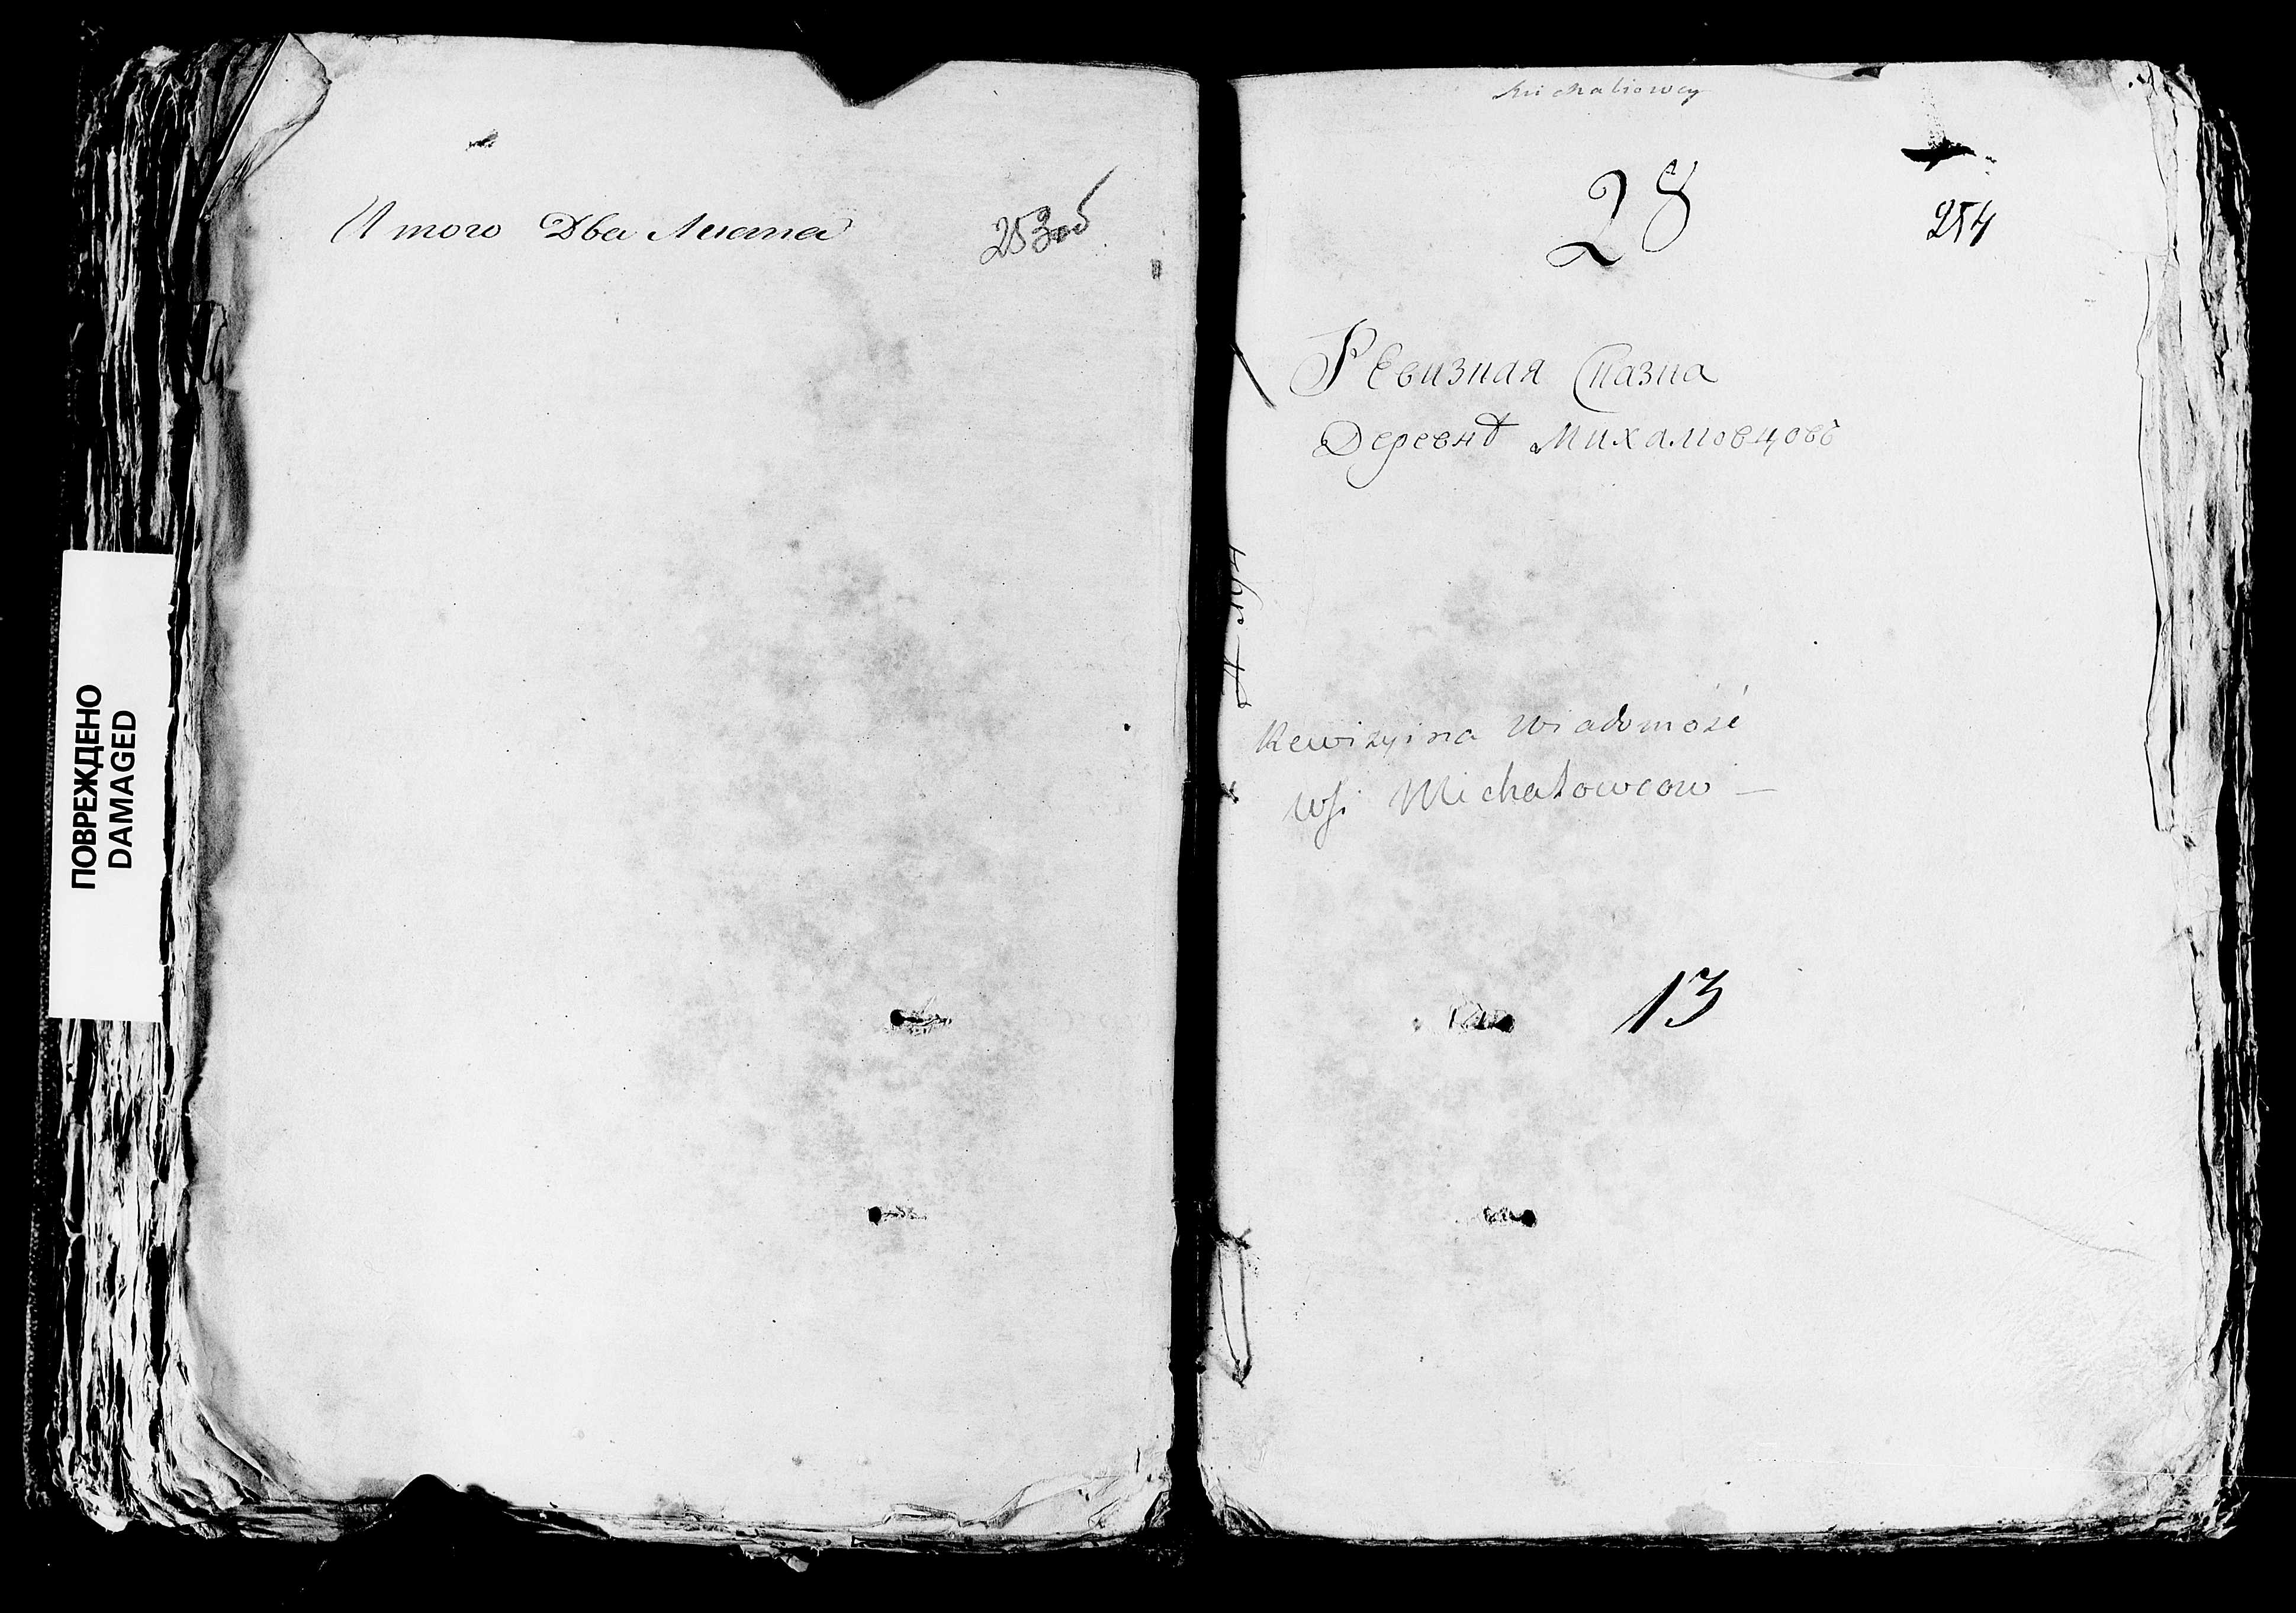 ПОВРЕЖДЕНО
DAMAGED
Итого Два Листа
253об
28
254
Ревизная Сказка
Деревнѣ Михаловцовъ
Rewizyina Wiadomość
Wsi Michałowcow —
13